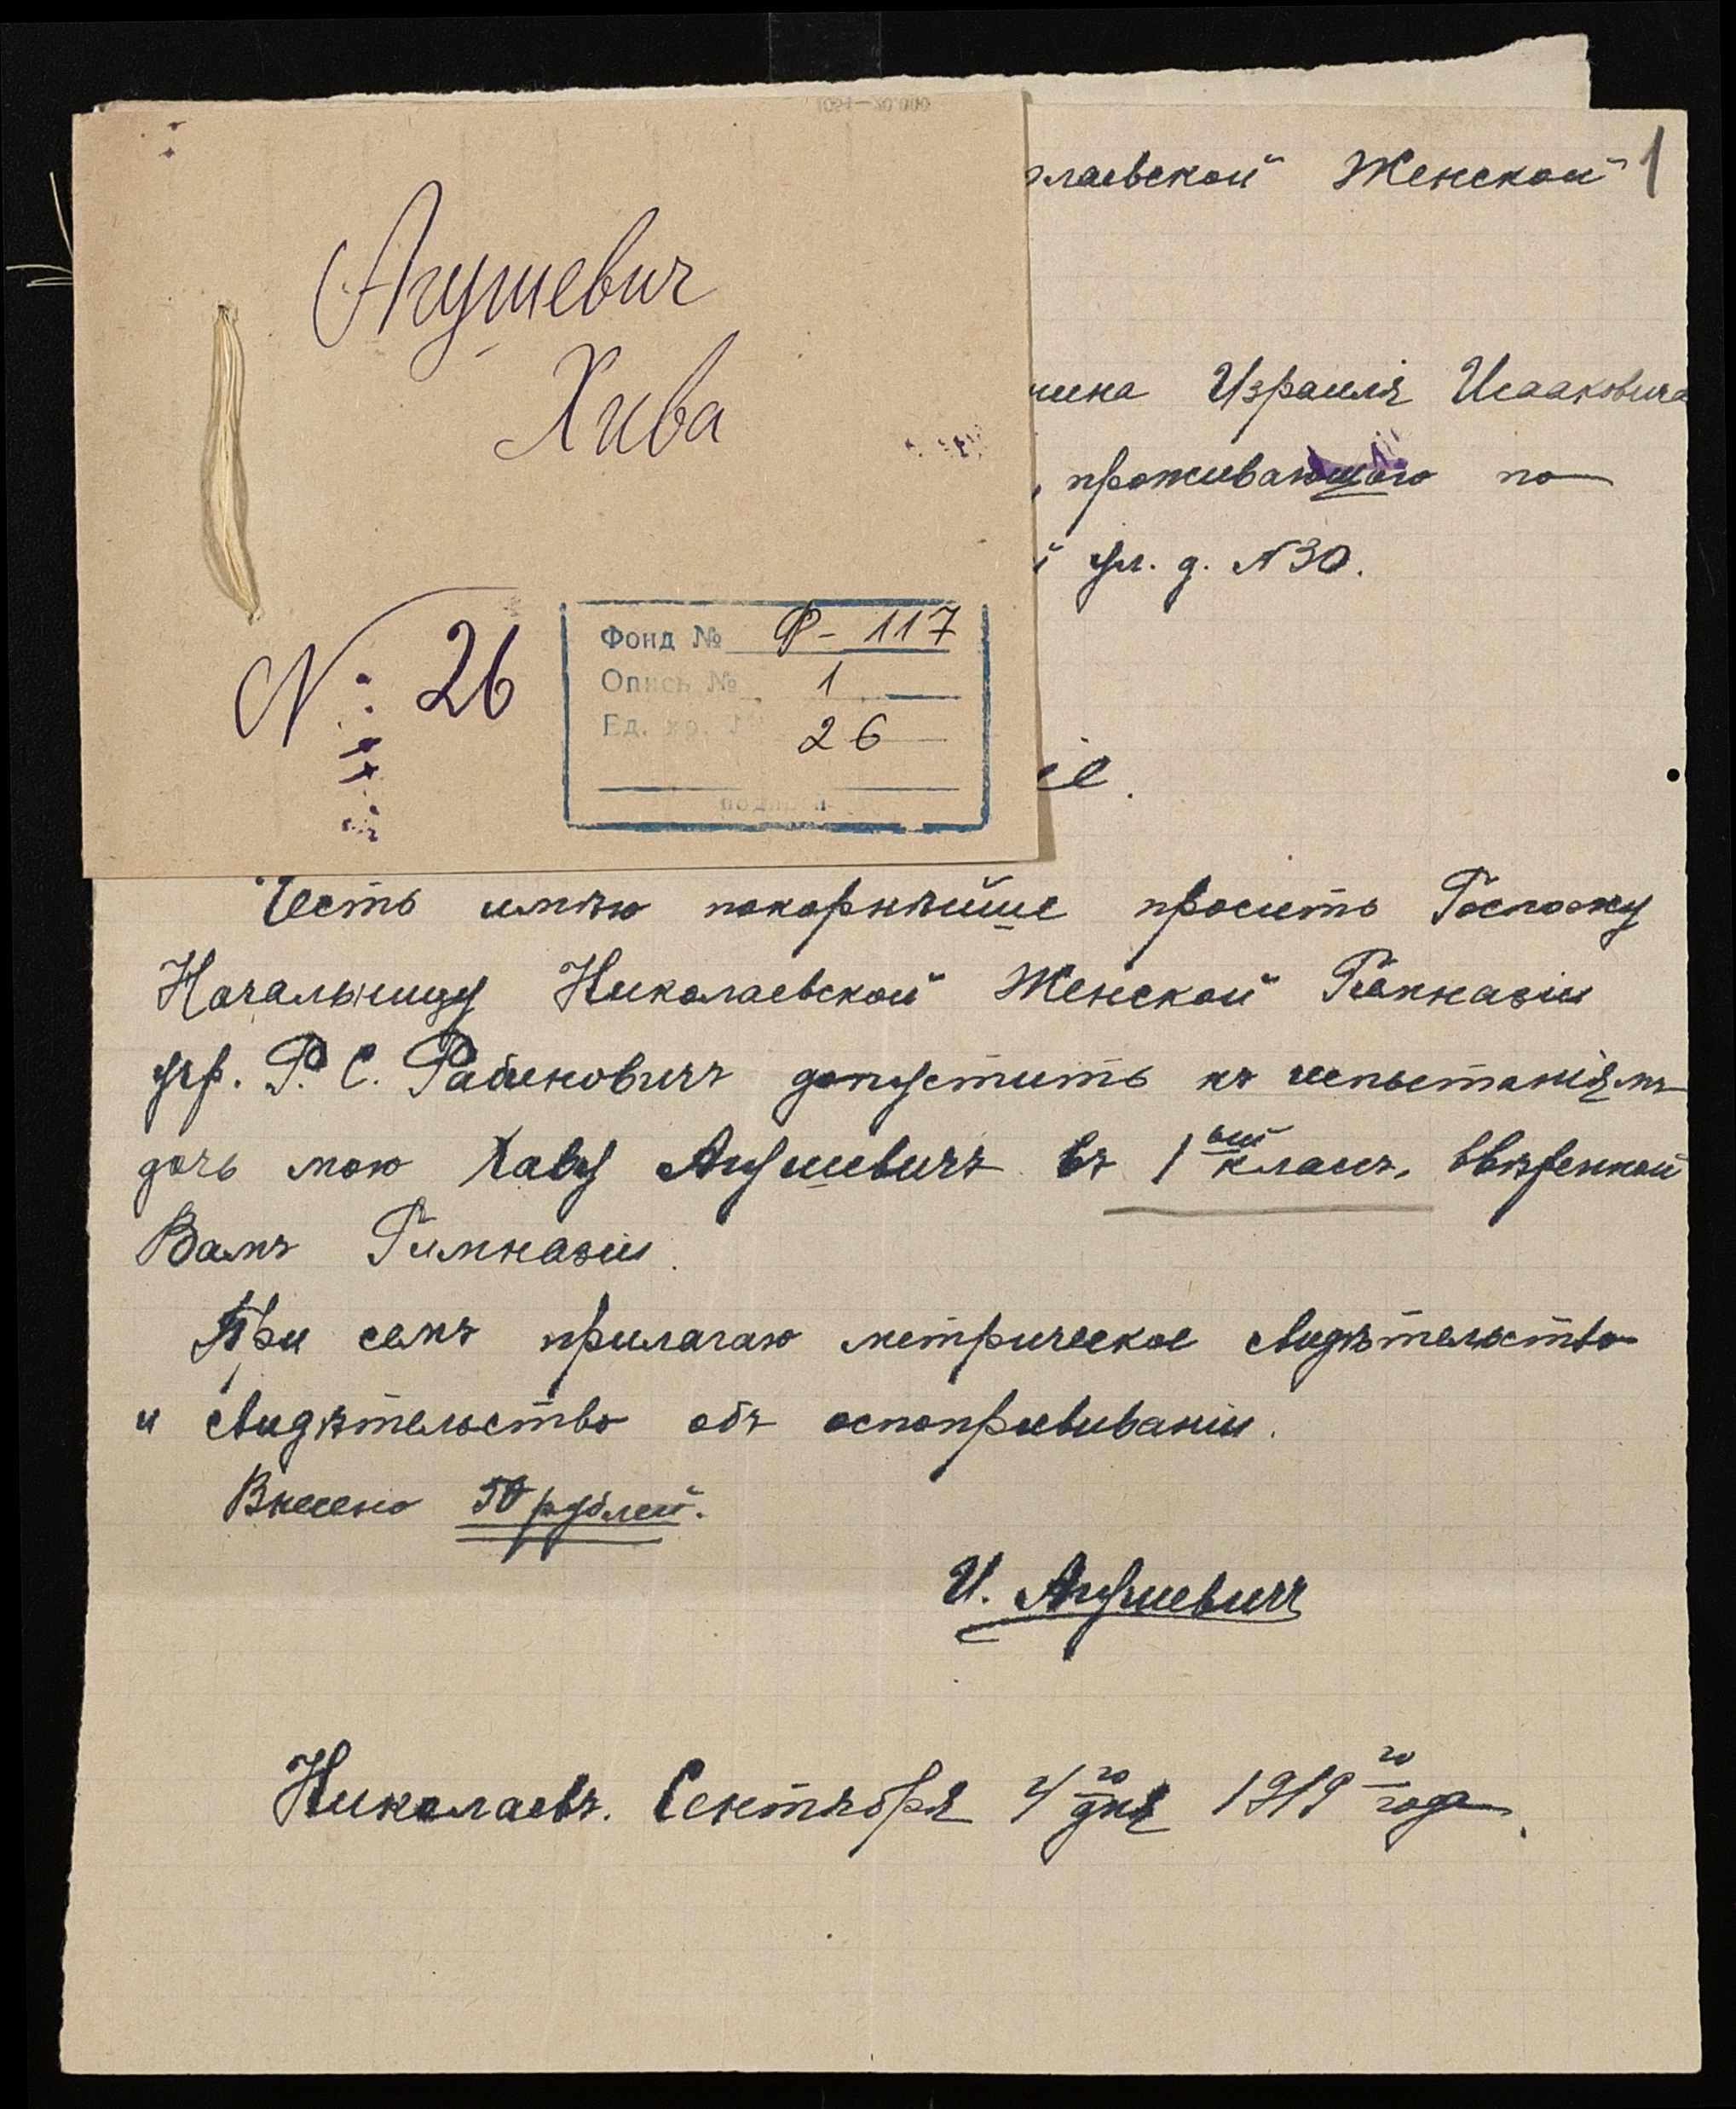 Агушевич
Хива
N: 26
Фонд № Р- 117
Опись № 1
Ед. хр. № 26
олаевской Женской 1
нина Израиля Исааковича
, проживающаго по
й ул. д. №30.
іе.
Честь имѣю покорнѣйше просить Госпожу
Начальницу Николаевской Женской Гимназіи
учр. Р. С. Рабиновичъ допустить къ испытаніямъ
дочь мою Хаву Агушевичъ въ 1ый классъ, ввѣренной
Вамъ Гимназіи.
При семъ прилагаю метрическое свидѣтельство
и свидѣтельство объ оспопрививаніи.
Внесено 50 рублей.
И. Агушевичъ
Николаевъ. Сентября 4го дня 1919го года.